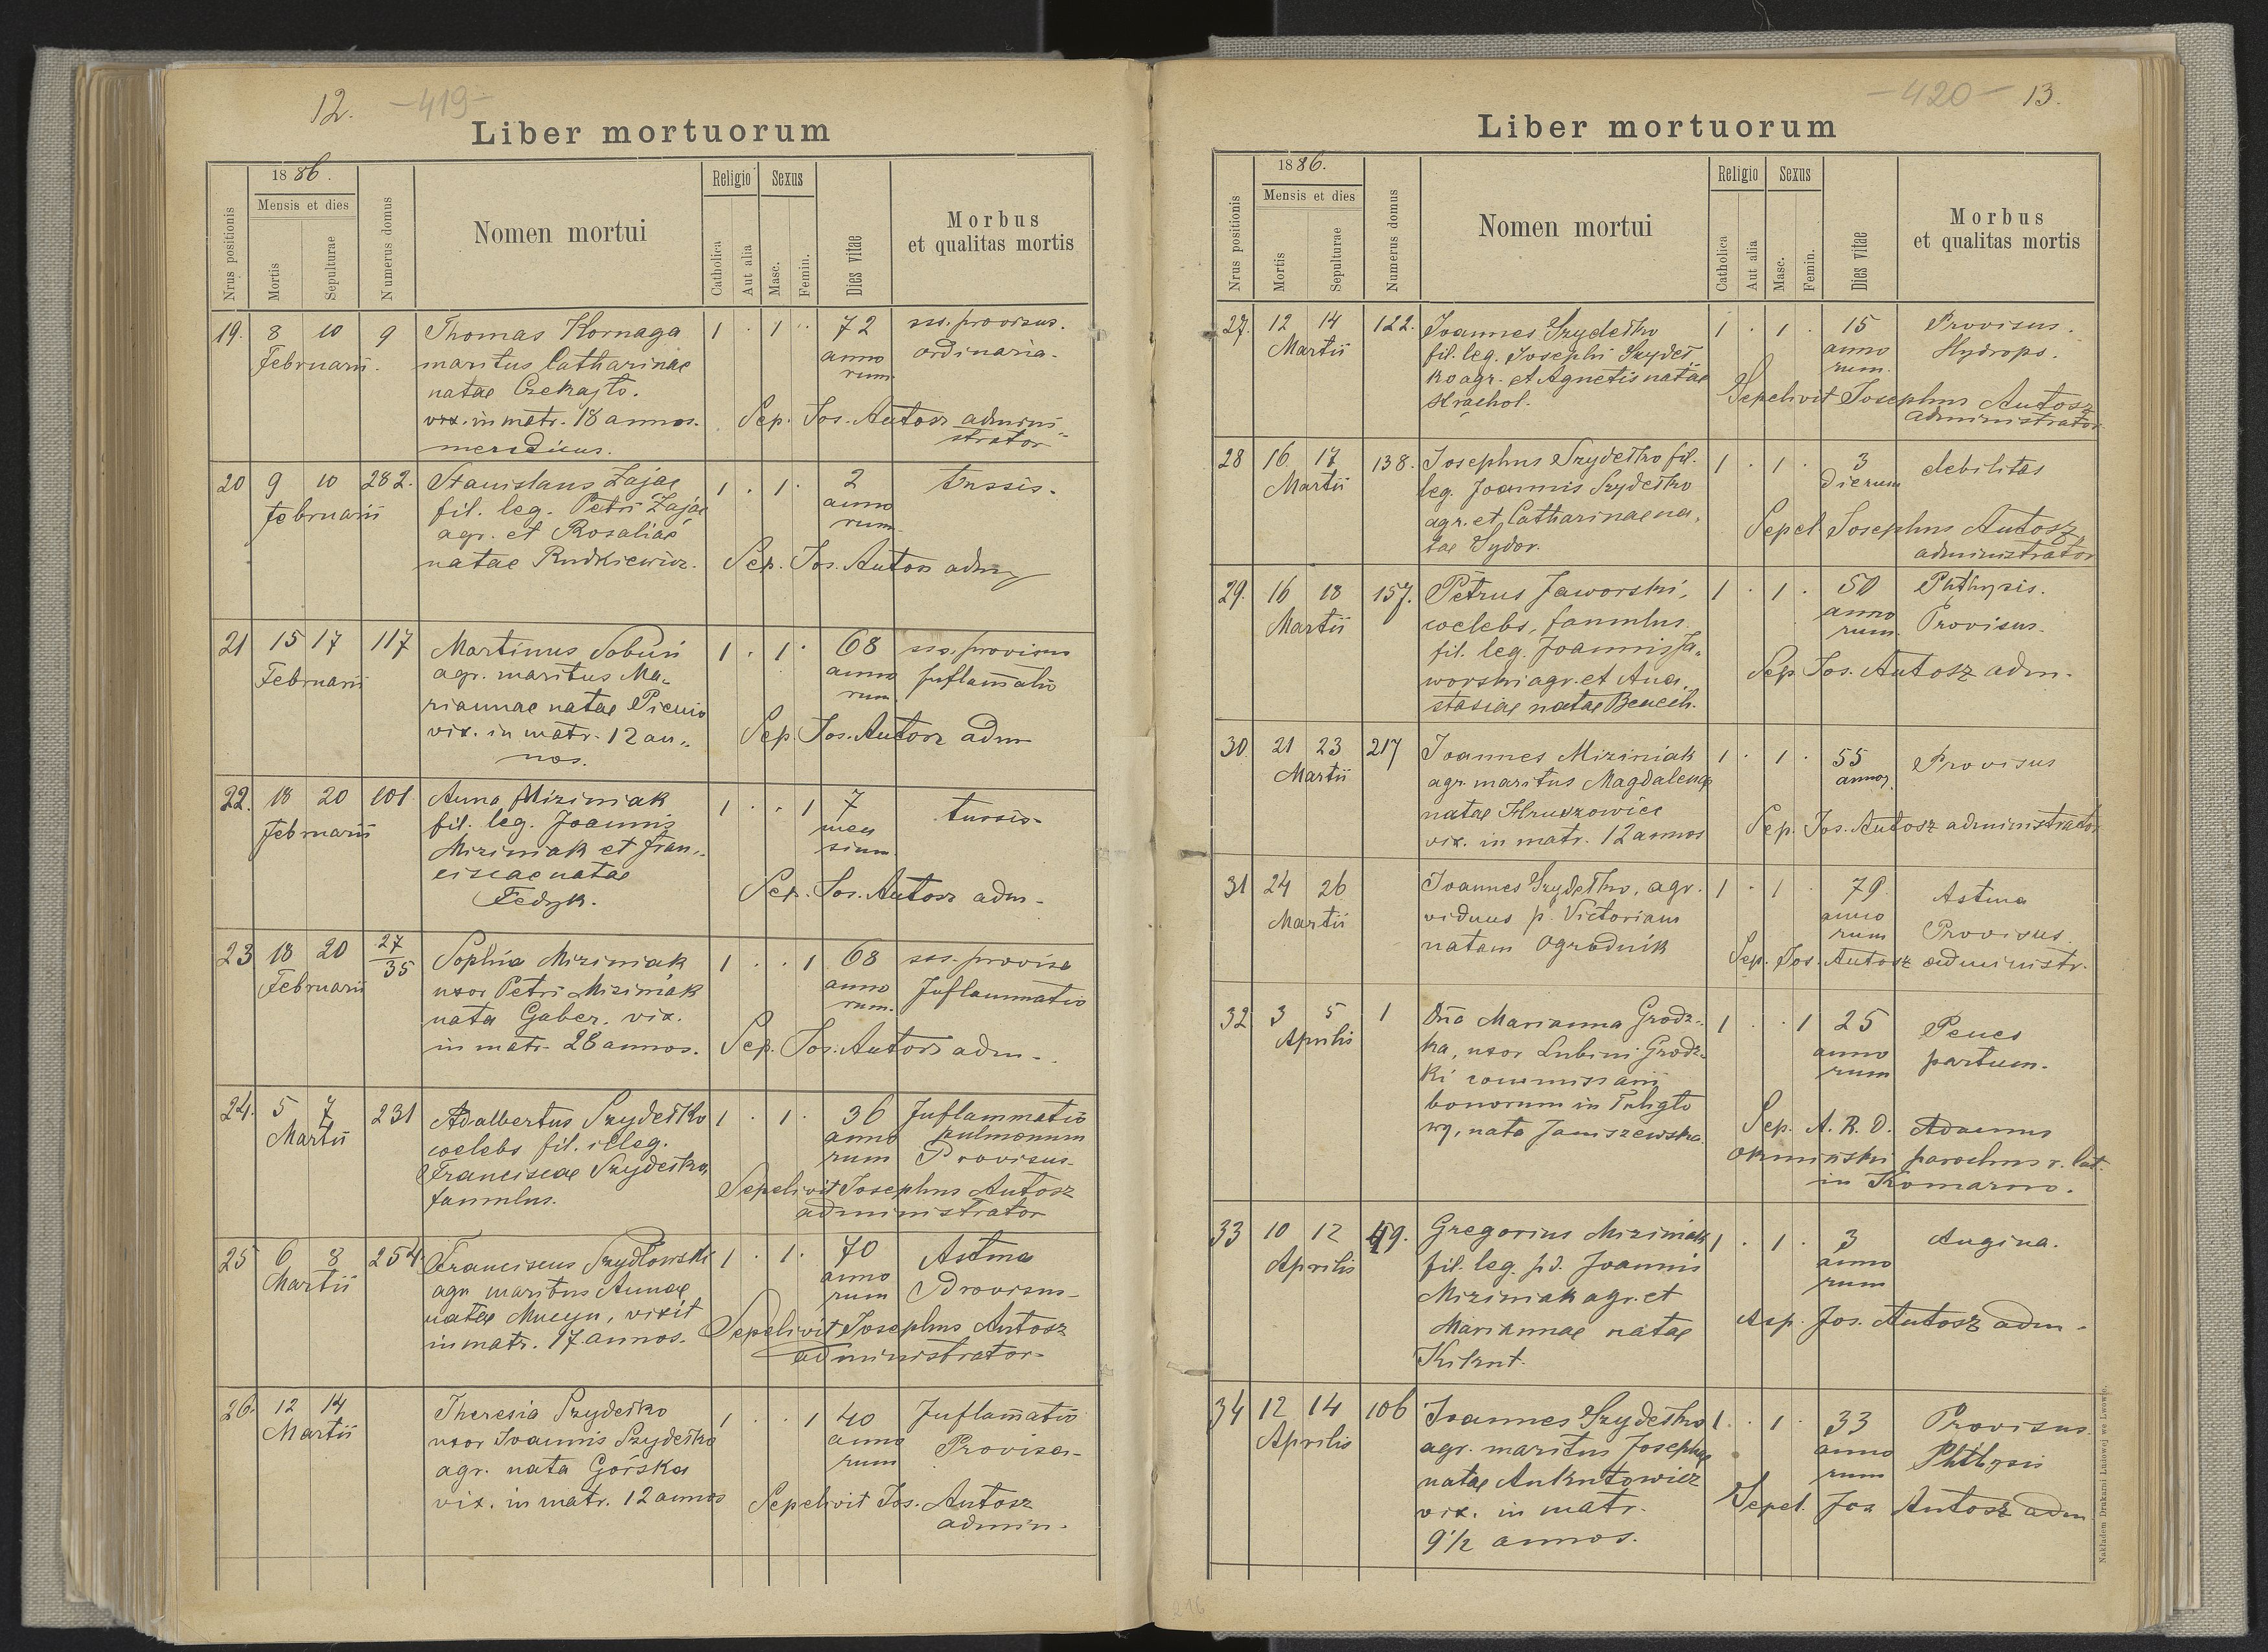 12. -419-
Liber mortuorum
Nrus positionis
1886.
Mensis et dies
Mortis
Sepulturae
Numerus domus
Nomen mortui
Religio
Catholica
Aut alia
Sexus
Masc.
Femin.
Dies vitae
Morbus
et qualitas mortis
19. 8 10 9 Thomas Kornaga 1 . 1 . 72 sss. provisus.
Februarii. maritus Catharinae anno ordinaria.
natae Czekajło. rum
vix. in matr. 18 annos. Sep. Jos. Autosz admini
strator
20 9 10 282. Stanislaus Zając 1 . 1 . 2 tussis.
Februarii fil. leg. Petri Zając anno
agr. et Rosaliae rum
natae Rudkiewicz. Sep. Jos. Autosz adm
21 15 17 117 Martinus Sobuń 1 . 1 . 68 sss. provisus
Februarii agr. maritus Ma„ anno Inflamatio
riannae natae rum
vix. in matr. 12 an„ Sep. Jos. Autosz adm
nos.
22. 18 20 101 Anna Miziniak 1 . . 1 7 tussis.
Februarii fil. leg. Joannis men
Miziniak et Fran„ sium
ciscae natae
Fedyk. Sep. Jos. Autosz adm.
23 18 20 27/35 Sophia Miziniak 1 . . 1 68 sss. provisa
Februarii uxor Petri Miziniak anno Inflammatio
nata Gaber. vix. rum.
in matr. 28 annos. Sep. Jos. Autosz adm.
24. 5 7 231 Adalbertus Szydełko 1 . 1 . 36 Inflammatio
Martii coelebs fil. illeg. anno pulmonum
Franciscae Szydełko, rum Provisus.
famulus. Sepelivit Josephus Autosz
administrator
25 6 8 254. Franciscus Szydłowski 1 . 1 . 70 Astma
Martii agr. maritus Annae anno Provisus.
natae Mucyn, vixit rum
in matr. 17 annos. Sepelivit Josephus Autosz
administrator.
26. 12 14 Theresia Szydełko 1 . . 1 40 Inflamatio
Martii uxor Joannis Szydełko anno Provisa.
agr. nata Górska rum
vix. in matr. 12 annos Sepelivit Jos. Autosz
admin.
-420- 13.
Liber mortuorum
Nrus positionis
1886.
Mensis et dies
Mortis
Sepulturae
Numerus domus
Nomen mortui
Religio
Catholica
Aut alia
Sexus
Masc.
Femin.
Dies vitae
Morbus
et qualitas mortis
27. 12 14 122. Joannes Szydełko 1 . 1 . 15 Provisus.
Martii fil. leg. Josephi Szydeł anno Hydrops.
ko agr. et Agnetis natae rum.
Strachol. Sepelivit Josephus Autosz
administrator
28 16 17 138. Josephus Szydełko fil. 1 . 1 . 3 debilitas
Martii leg. Joannis Szydełko dierum
agr. et Catharinae na„ Sepel Josephus Autosz,
tae Sydor. administrator
29. 16 18 157. Petrus Jaworski, 1 . 1 . 50 Phthysis.
Martii coelebs, famulus anno Provisus.
fil. leg. Joannis Ja„ rum.
worski agr. et Ana Sep. Jos. Autosz adm.
stasiae natae Benech.
30. 21 23 217 Joannes Miziniak 1 . 1 . 55 Provisus
Martii agr. maritus Magdalenae annor.
natae Hruszowiec
vix. in matr. 12 annos Sep. Jos. Autosz administrator
31 24 26 Joannes Szydełko, agr. 1 . 1 . 79 Astma
Martii viduus p. Victoriam anno Provisus.
natam Ogrodnik rum
Sep. Jos. Autosz administr.
32 3 5 1 Dña Marianna Grodz„ 1 . . 1 25 Penes
Aprilis ka, uxor Lubini Grodz„ anno partum.
ki commissarii rum
bonorum in Tuligło
wy, nata Janiszewska Sep. A. R. D. Adamus
parochus r. lat.
in Komarno.
33 10 12 49. Gregorius Miziniak 1 . 1 . 3 Angina.
Aprilis fil. leg. pd. Joannis anno
Miziniak agr. et rum
Mariannae natae Sep. Jos. Autosz adm.
Kiknt.
34 12 14 106 Joannes Szydełko 1 . 1 . 33 Provisus
Aprilis agr. maritus Josephae anno Phthysis
natae rum
vix. in matr. Sepel. Jos Autosz adm
9½ annos.
Nakładem Drukarni Ludowej we Lwowie.
216